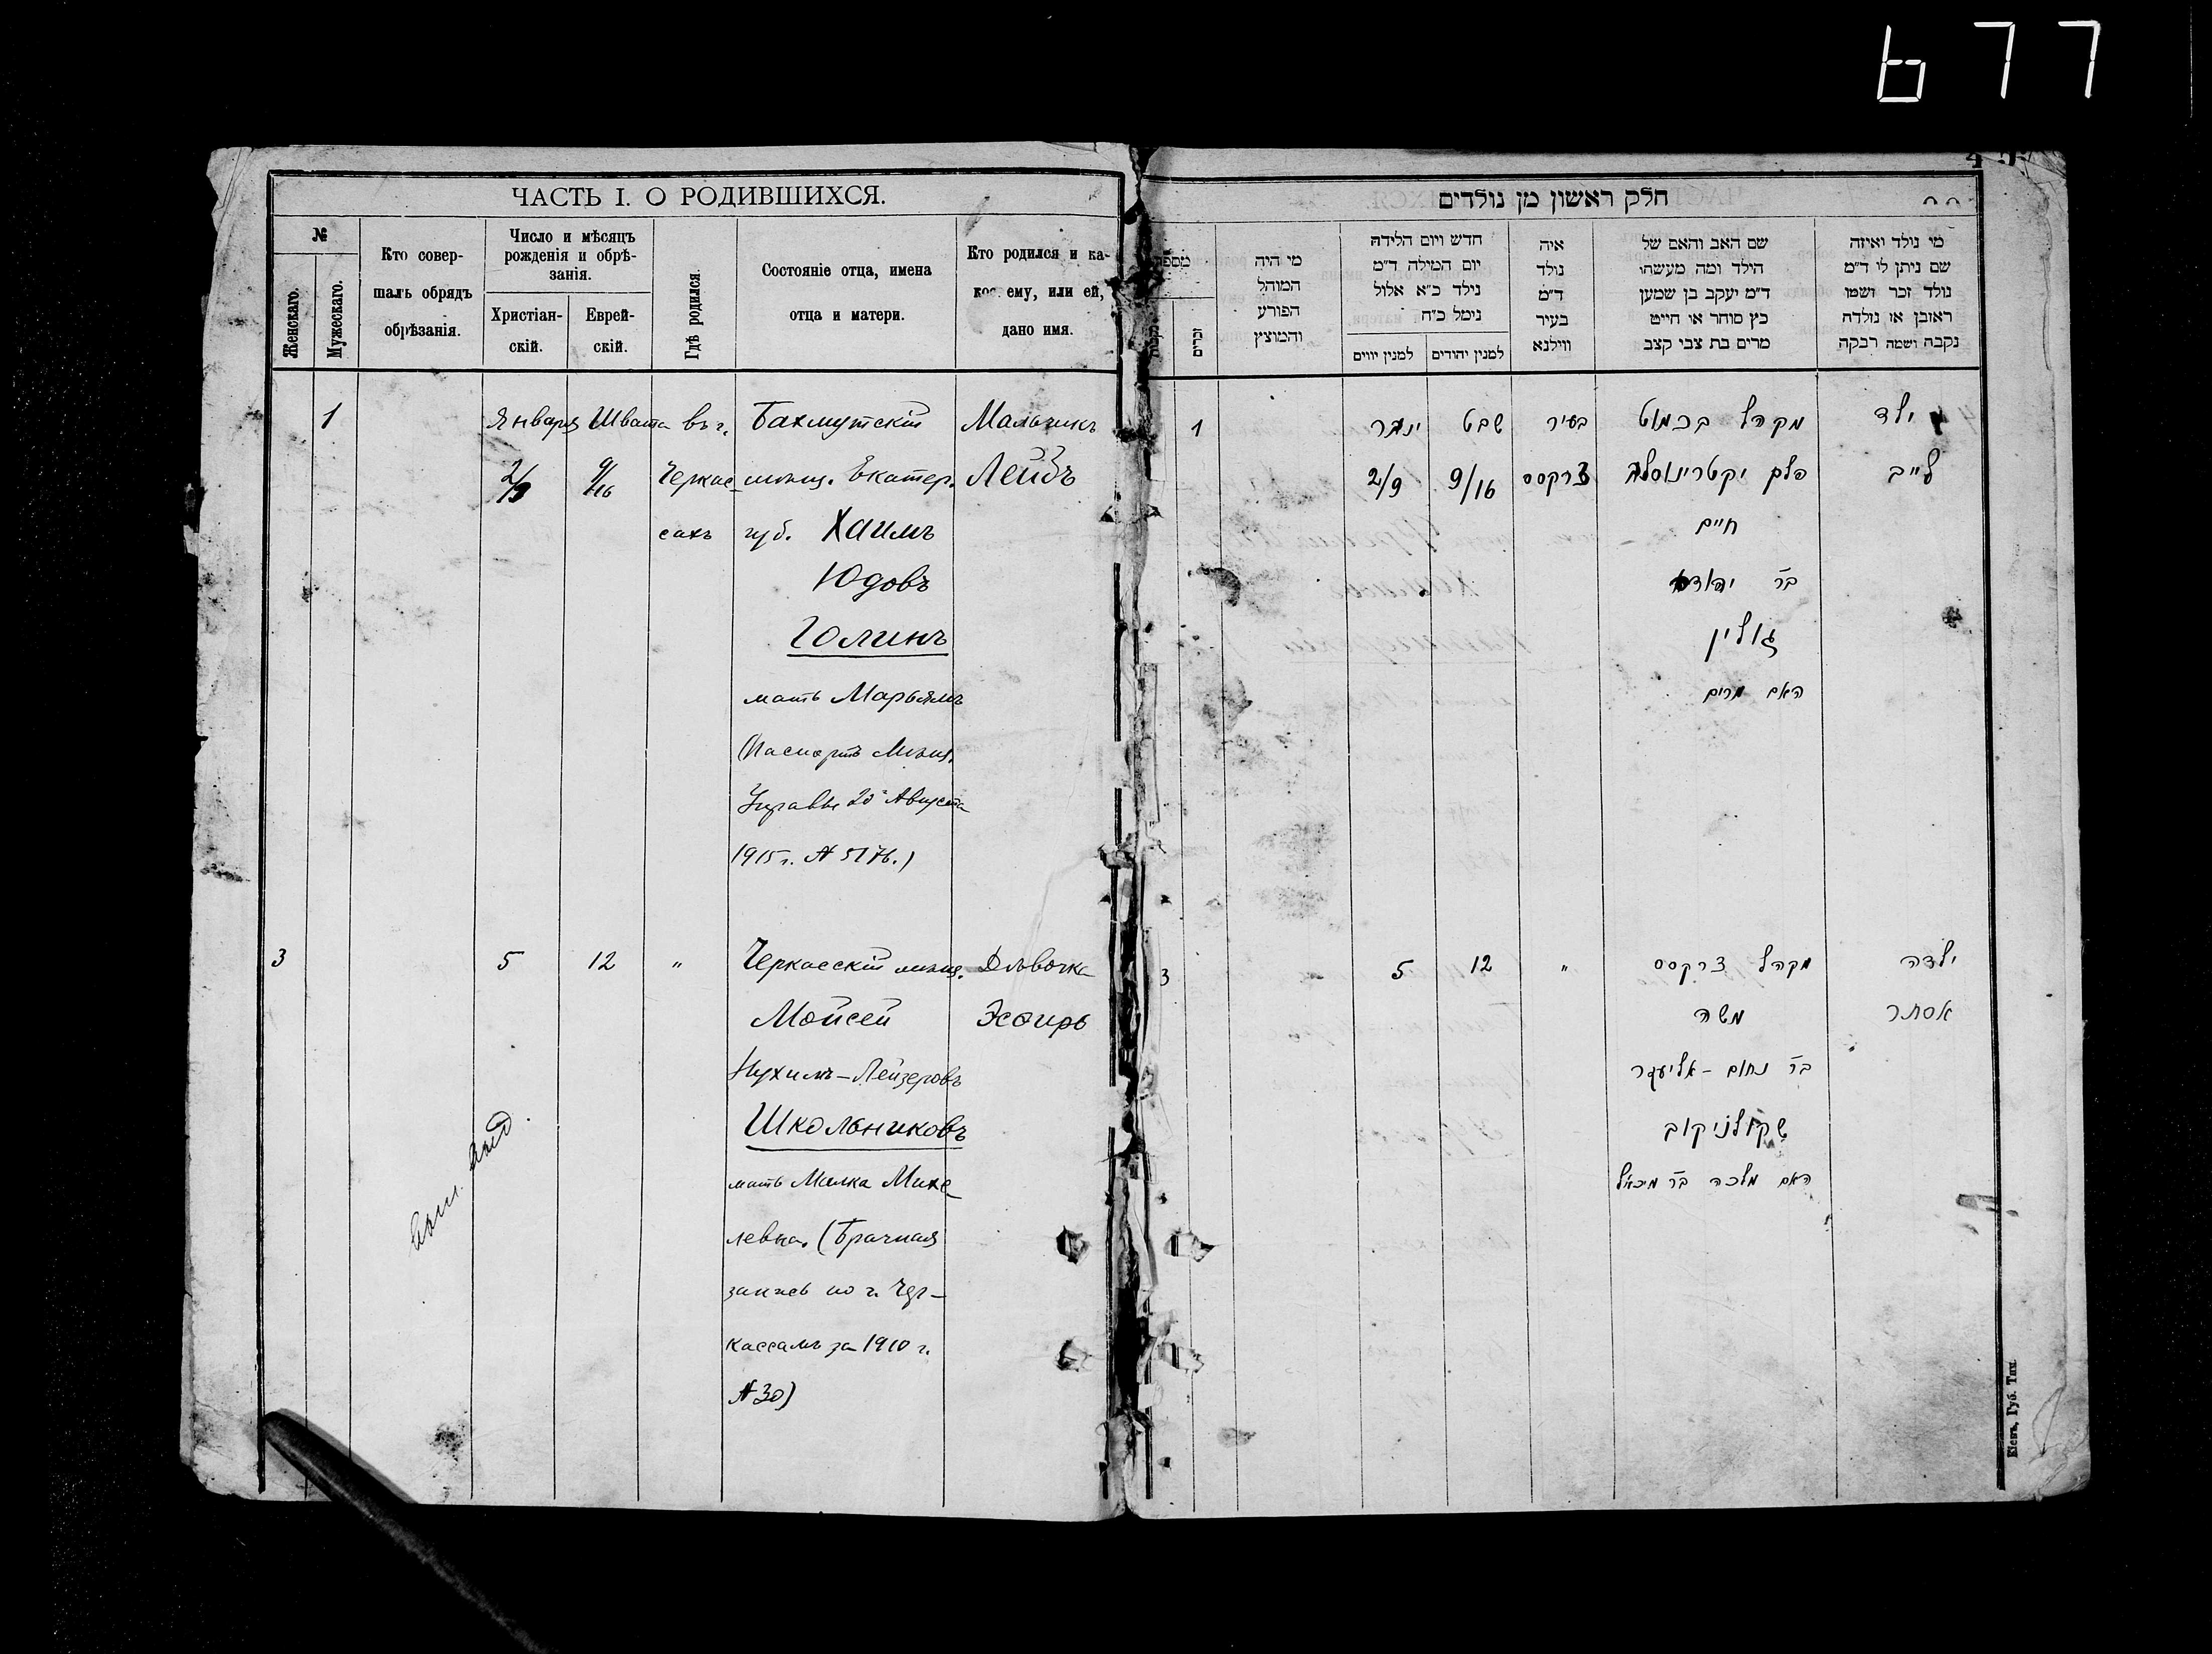 677
ЧАСТЬ I. О РОДИВШИХСЯ.
№
Женскаго.
Мужескаго.
Кто совер-
шалъ обрядъ
обрѣзанія.
Число и мѣсяцъ
рожденія и обрѣ-
занія.
Христіан-
скій.
Еврей-
скій.
Гдѣ родился.
Состояніе отца, имена
отца и матери.
Кто родился и ка-
кое ему, или ей,
дано имя.
1 Января Швата въ г. Бахмутскій Мальчикъ
2/9 9/16 Черкас- мѣщ. Екатер. Лейбъ
сахъ губ. Хаимъ
Юдовъ
Голинъ
мать Марьямъ
(Паспортъ Мѣщ.
Управы 20 Августа
1915 г. № 5176.)
3 5 12 " Черкасскій мѣщ. Дѣвочка
Мойсей Эсфирь
Нухимъ-Лейзеровъ
Школьниковъ
мать Малка Михе-
левна. (Брачная
запись по г. Чер-
кассамъ за 1910 г.
№ 30)
חלק ראשון מן נולדים
מי נולד ואיזה
שם ניתן לו ד"מ
נולד זכר ושמו
ראובן או נולדה
נקבה ושמה רבקה
שם האב והאם של
הילד ומה מעשהו
ד"מ יעקב בן שמען
כץ סוחר או חייט
מרים בת צבי קצב
איה
נולד
ד"מ
בעיר
ווילנא
חדש ויום הלידה
יום המילה ד"מ
נילד כ"א אלול
נימל כ"ח
למנין יהודים
למנין יווים
מי היה
המוהל
הפורע
והמוצץ
זכרים
ילד מקהל בכמוט בעיר שבט ינואר 1
לייב פלך יקטרינוסלב צרקסס 9/16 2/9
חיים
בר יהודה
גולין
האם מרים
ילדה מקהל צרקסס " 12 5 3
אסתר משה
בר נחום-אליעזר
שקולניקוב
האם מלכה בר מיכאל
Кіевъ, Губ. Тип.